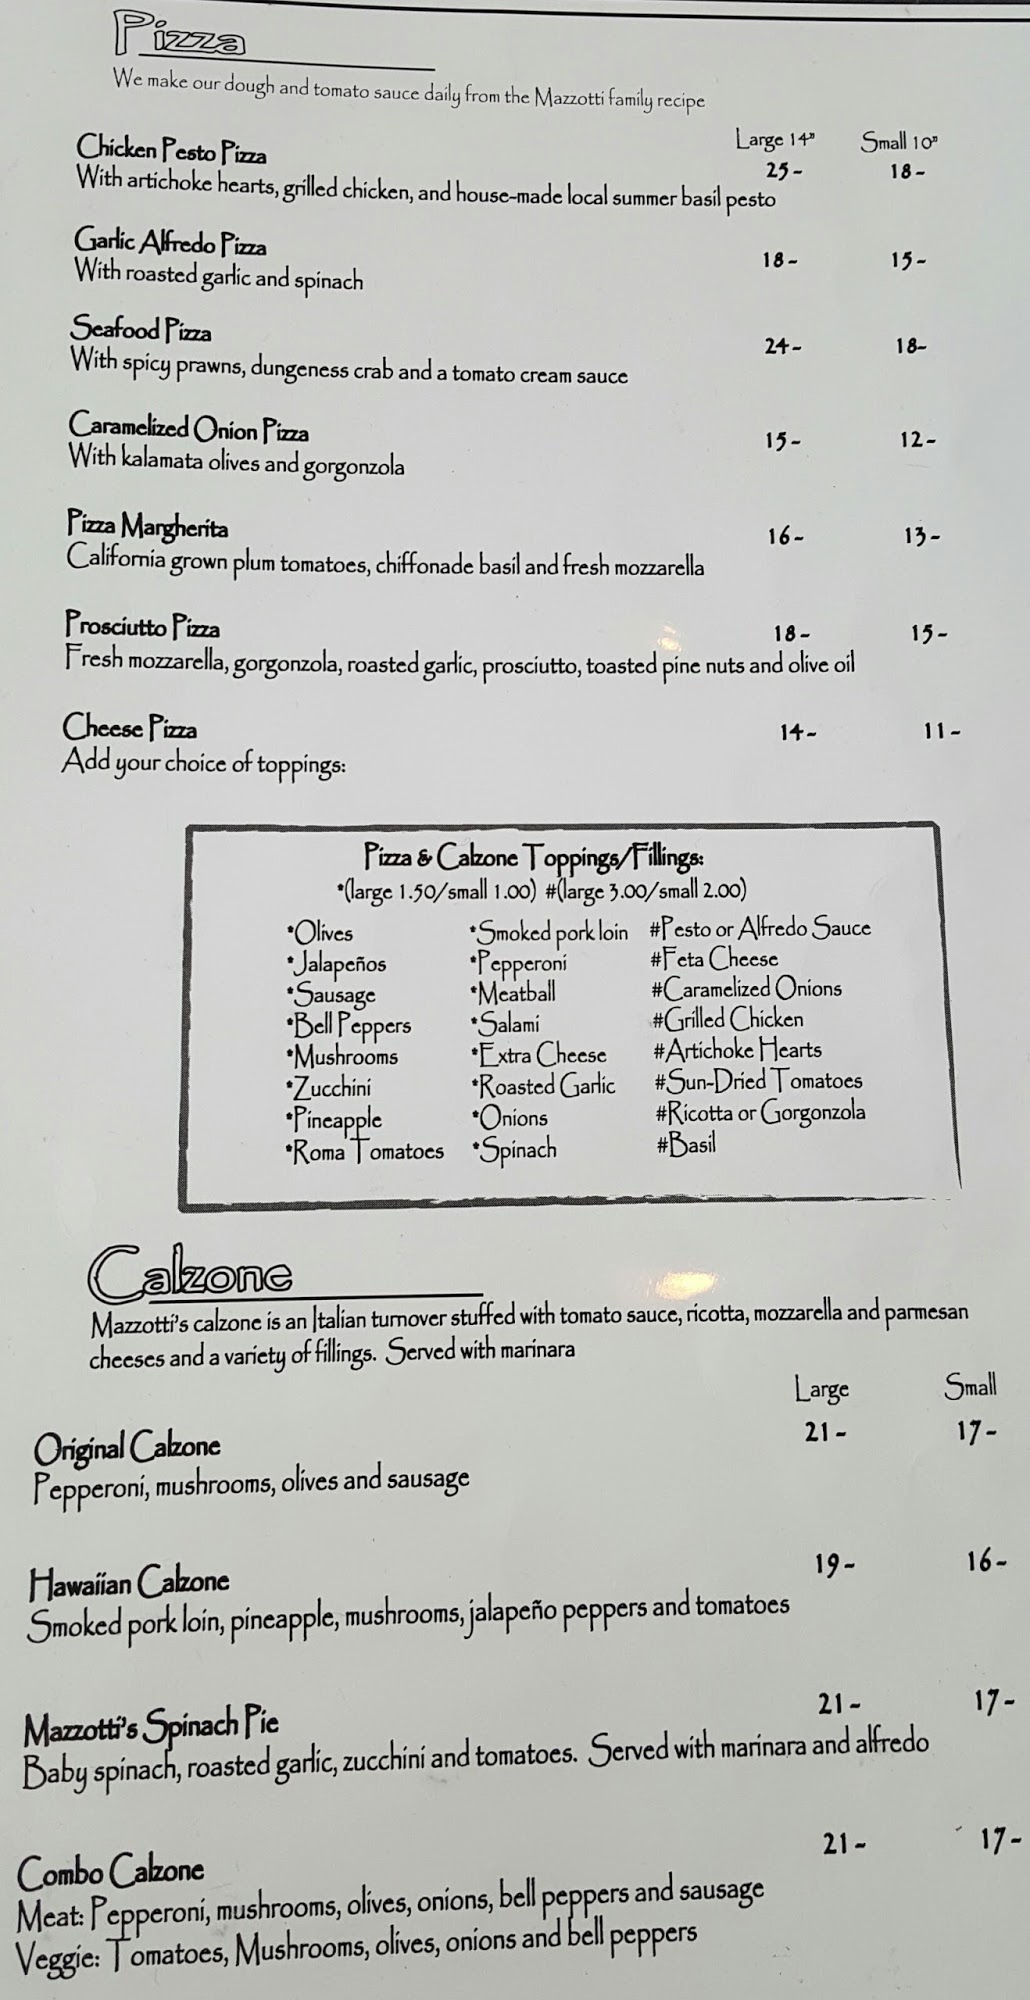 Pizza
We make our dough and tomato sauce daily from the Mazzotti family recipe
Large 14" Small 10"
Chicken Pesto Pizza 25~ 18~
With artichoke hearts, grilled chicken, and house-made local summer basil pesto
Garlic Alfredo Pizza 18~ 15~
With roasted garlic and spinach
Seafood Pizza 24~ 18~
With spicy prawns, dungeness crab and a tomato cream sauce
Caramelized Onion Pizza 15~ 12~
With kalamata olives and gorgonzola
Pizza Margherita 16~ 13~
California grown plum tomatoes, chiffonade basil and fresh mozzarella
Prosciutto Pizza 18~ 15~
Fresh mozzarella, gorgonzola, roasted garlic, prosciutto, toasted pine nuts and olive oil
Cheese Pizza 14~ 11~
Add your choice of toppings:
Pizza & Calzone Toppings/Fillings:
*(large 1.50/small 1.00) #(large 3.00/small 2.00)
*Olives *Smoked pork loin #Pesto or Alfredo Sauce
*Jalapeños *Pepperoni #Feta Cheese
*Sausage *Meatball #Caramelized Onions
*Bell Peppers *Salami #Grilled Chicken
*Mushrooms *Extra Cheese #Artichoke Hearts
*Zucchini *Roasted Garlic #Sun-Dried Tomatoes
*Pineapple *Onions #Ricotta or Gorgonzola
*Roma Tomatoes *Spinach #Basil
Calzone
Mazzotti's calzone is an Italian turnover stuffed with tomato sauce, ricotta, mozzarella and parmesan
cheeses and a variety of fillings. Served with marinara
Large Small
Original Calzone 21~ 17~
Pepperoni, mushrooms, olives and sausage
Hawaiian Calzone 19~ 16~
Smoked pork loin, pineapple, mushrooms, jalapeño peppers and tomatoes
Mazzotti's Spinach Pie 21~ 17~
Baby spinach, roasted garlic, zucchini and tomatoes. Served with marinara and alfredo
Combo Calzone 21~ 17~
Meat: Pepperoni, mushrooms, olives, onions, bell peppers and sausage
Veggie: Tomatoes, Mushrooms, olives, onions and bell peppers